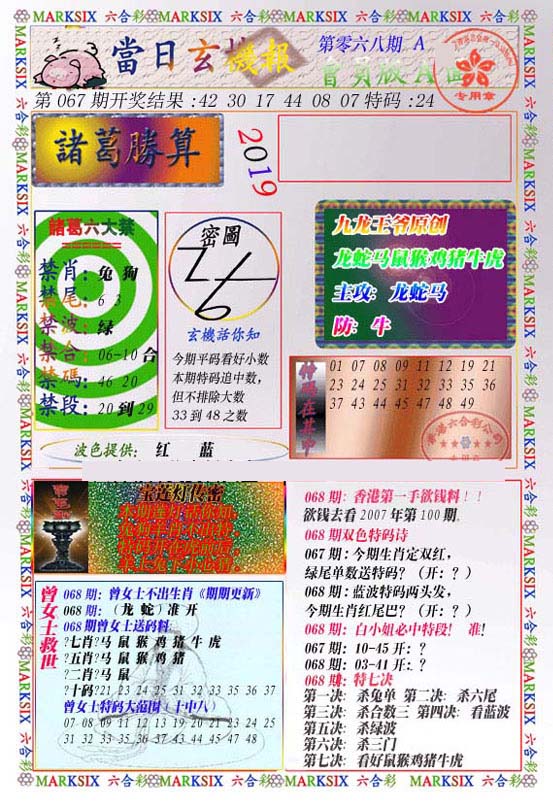 MARKSIX 六合彩 MARKSIX 六合彩 MARKSIX 六合彩 MARKSIX 六合彩
當日玄機報
第零六八期 A
會員版A面
专用章
第 067 期开奖结果 : 42 30 17 44 08 07 特码 : 24
諸葛勝算
2019
諸葛六大禁
禁肖: 兔 狗
禁尾: 6 3
禁波: 绿
禁合: 06-10 合
禁碼: 46 20
禁段: 20 到 29
密圖
玄機話你知
今期平码看好小数
本期特码追中数,
但不排除大数
33 到 48 之数
九龙王爷原创
龙蛇马鼠猴鸡猪牛虎
主攻: 龙蛇马
防: 牛
特码在其中
01 07 08 09 11 12 19 21
23 24 25 31 32 33 35 36
37 43 44 45 47 48 49
波色提供: 红 蓝
宝莲灯传密
068 期: 曾女士不出生肖《期期更新》
068 期: (龙 蛇) 准 开
068 期曾女士送码料
?七肖?马 鼠 猴 鸡 猪 牛 虎
?五肖?马 鼠 猴 鸡 猪
?二肖?马 鼠
?十码?21 23 24 25 31 32 33 35 36 37
曾女士特码大范围 (十中八)
07 08 09 11 12 13 19 21 23 24 25
31 32 33 35 36 37 43 44 45 47 48
曾女士救世
068 期: 香港第一手欲钱料 ! !
欲钱去看 2007 年第 100 期.
068 期双色特码诗
067 期: 今期生肖定双红,
绿尾单数送特码? (开: ? )
068 期: 蓝波特码两头发,
今期生肖红尾巴? (开: ? )
068 期: 白小姐必中特段! 准!
067 期: 10-45 开: ?
068 期: 03-41 开: ?
068 期: 特七决
第一决: 杀兔单 第二决: 杀六尾
第三决: 杀合数三 第四决: 看蓝波
第五决: 杀绿波
第六决: 杀三门
第七决: 看好鼠猴鸡猪牛虎
MARKSIX 六合彩 MARKSIX 六合彩 MARKSIX 六合彩 MARKSIX 六合彩